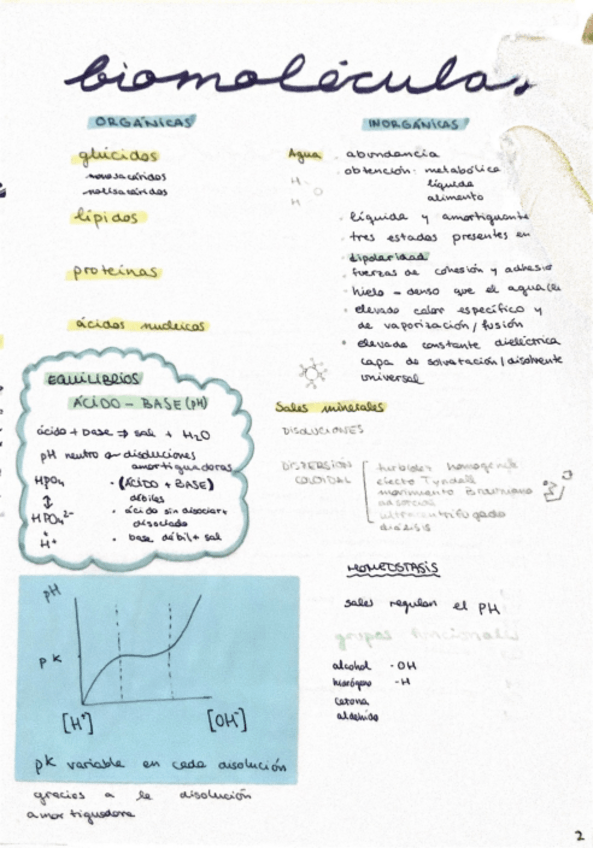 biomoléculas
ORGÁNICAS
glúcidos
monosacáridos
polisacáridos
lípidos
proteínas
ácidos nucleicos
EQUILIBRIOS
ÁCIDO - BASE (pH)
ácido + base ⇒ sal + H₂O
pH neutro disoluciones
amortiguadoras
HPO₄
↕
HPO₄²⁻
+
H⁺
· (ÁCIDO + BASE)
débiles
· ácido sin disociar +
disociado
· base débil + sal
pH
pK
[H⁺]
[OH⁻]
pK variable en cada disolución
gracias a la disolución
amortiguadora
INORGÁNICAS
Agua
H
O
H
· abundancia
· obtención: metabólica
líquida
alimento
· líquida y amortiguante
· tres estados presentes en
· dipolaridad
· fuerzas de cohesión y adhesió
· hielo - denso que el agua
· elevado calor específico y
de vaporización / fusión
· elevada constante dieléctrica
capa de solvatación / disolvente
universal
Sales minerales
DISOLUCIONES
DISPERSIÓN
COLOIDAL
turbidez homogénea
efecto Tyndall
movimiento Browniano
adsorción
ultracentrifugado
diálisis
HOMEOSTASIS
sales regulan el pH
grupos funcionales
alcohol -OH
hidrógeno -H
cetona
aldehído
2